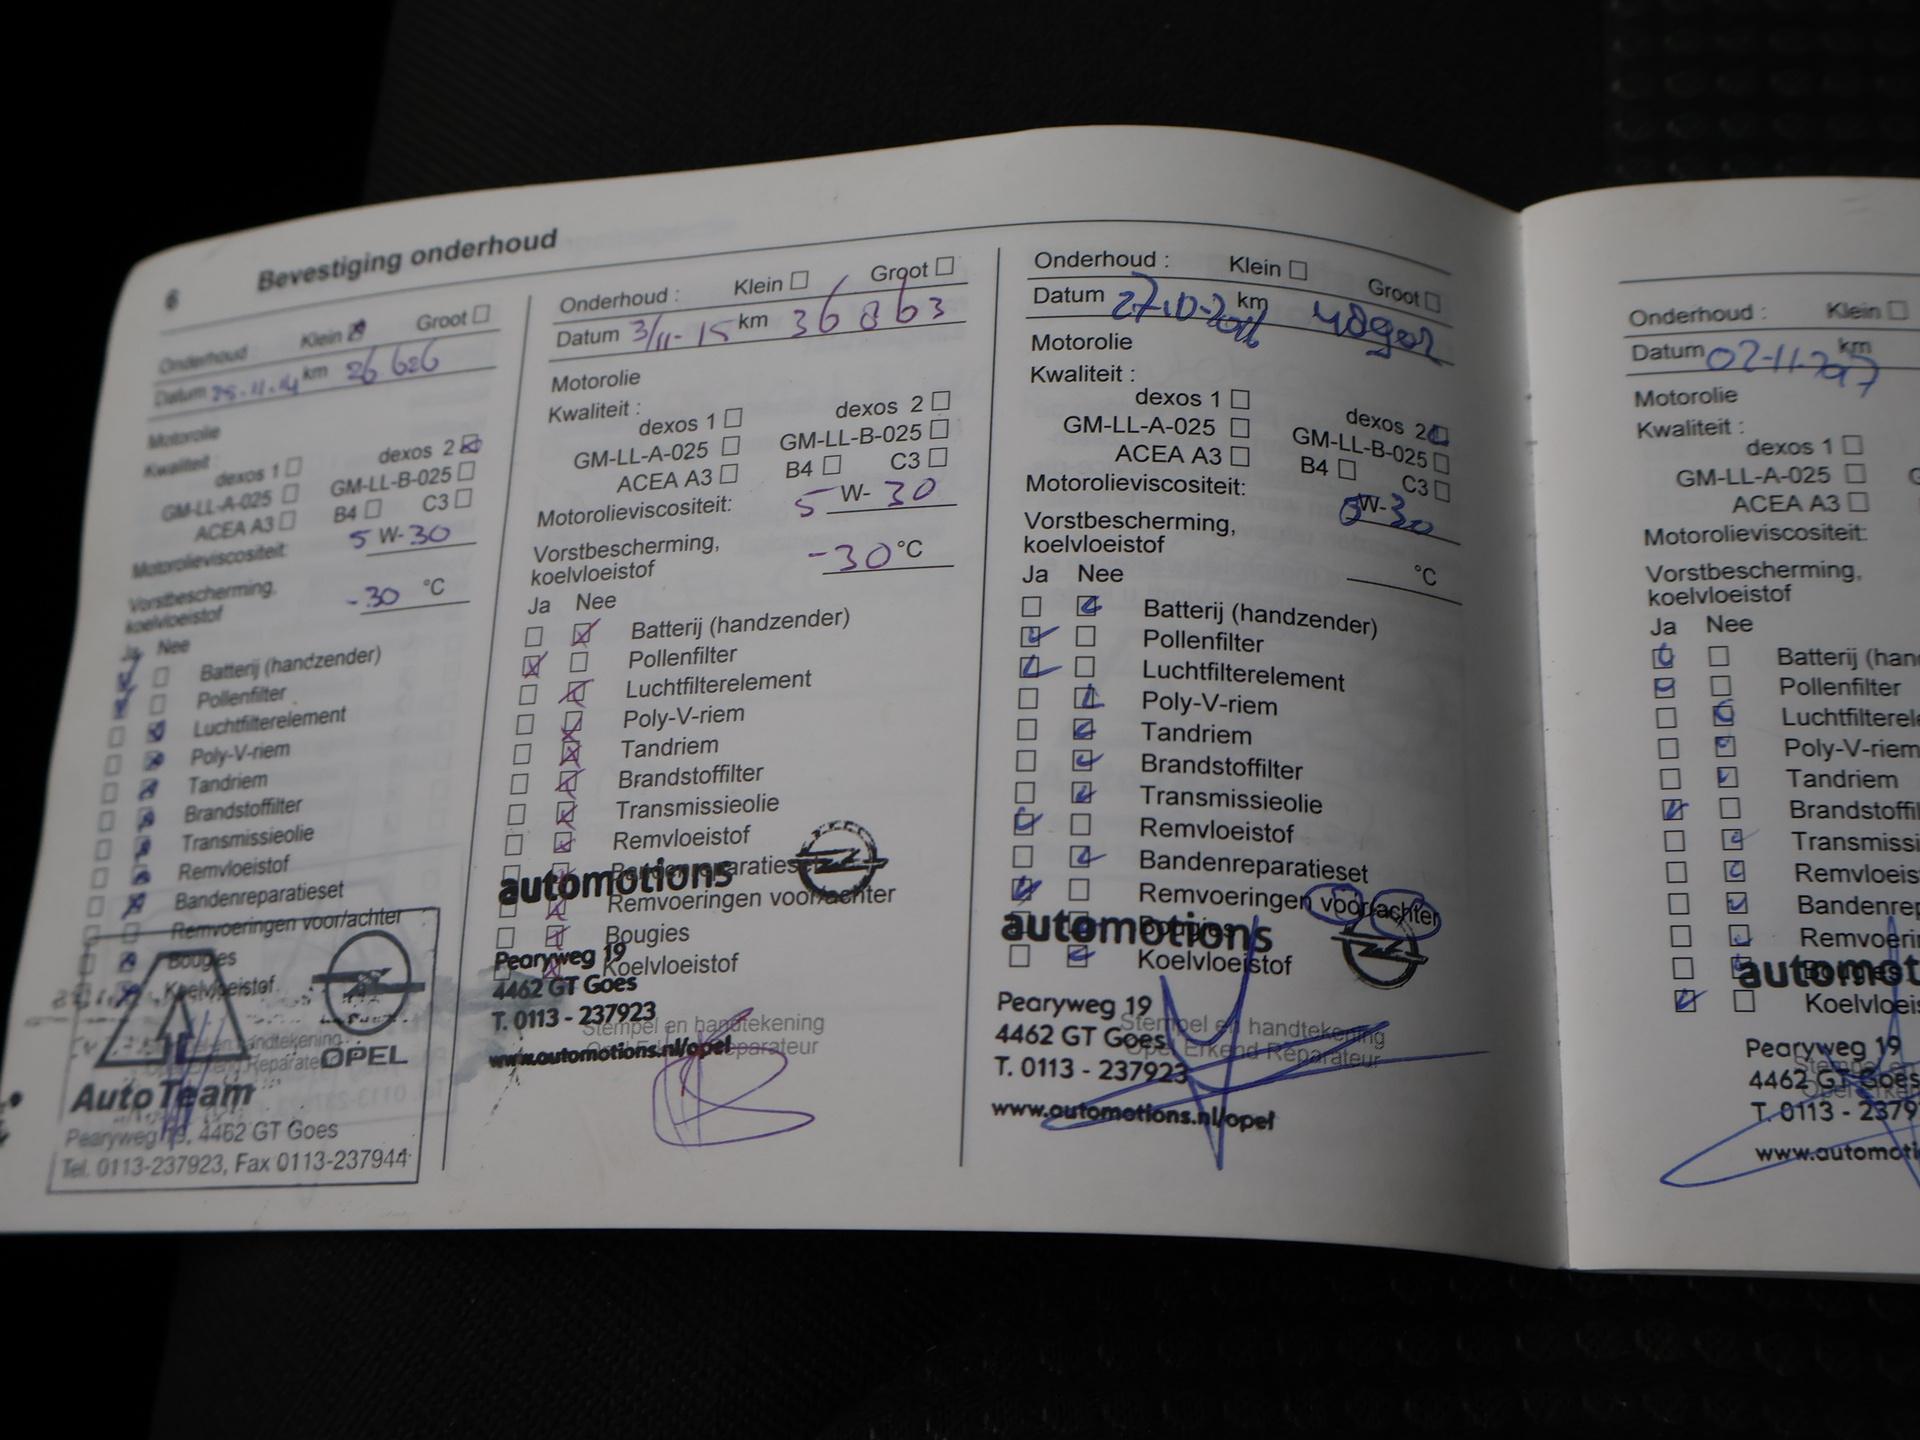 6 Bevestiging onderhoud
Onderhoud : Klein Groot
Datum 25.11.14 km 26 626
Motorolie
Kwaliteit :
dexos 1 dexos 2
GM-LL-A-025 GM-LL-B-025
ACEA A3 B4 C3
Motorolieviscositeit: 5 W-30
Vorstbescherming,
koelvloeistof -30 °C
Ja Nee
Batterij (handzender)
Pollenfilter
Luchtfilterelement
Poly-V-riem
Tandriem
Brandstoffilter
Transmissieolie
Remvloeistof
Bandenreparatieset
Remvoeringen voor/achter
Bougies
Koelvloeistof
Stempel en handtekening
Opel Erkend Reparateur
OPEL
AutoTeam
Pearyweg 19, 4462 GT Goes
Tel. 0113-237923, Fax 0113-237944
Onderhoud : Klein Groot
Datum 3/11-15 km 36863
Motorolie
Kwaliteit :
dexos 1 dexos 2
GM-LL-A-025 GM-LL-B-025
ACEA A3 B4 C3
Motorolieviscositeit: 5 W-30
Vorstbescherming,
koelvloeistof -30 °C
Ja Nee
Batterij (handzender)
Pollenfilter
Luchtfilterelement
Poly-V-riem
Tandriem
Brandstoffilter
Transmissieolie
Remvloeistof
Bandenreparatieset
automotions
Remvoeringen voor/achter
Bougies
Pearyweg 19
Koelvloeistof
4462 GT Goes
T. 0113 - 237923
Stempel en handtekening
Opel Erkend Reparateur
www.automotions.nl/opel
Onderhoud : Klein Groot
Datum 27.10-2016 km
Motorolie
Kwaliteit :
dexos 1 dexos 2
GM-LL-A-025 GM-LL-B-025
ACEA A3 B4 C3
Motorolieviscositeit: 5W-30
Vorstbescherming,
koelvloeistof °C
Ja Nee
Batterij (handzender)
Pollenfilter
Luchtfilterelement
Poly-V-riem
Tandriem
Brandstoffilter
Transmissieolie
Remvloeistof
Bandenreparatieset
Remvoeringen voor/achter
Bougies
automotions
Koelvloeistof
Pearyweg 19
Stempel en handtekening
4462 GT Goes
Opel Erkend Reparateur
T. 0113 - 237923
www.automotions.nl/opel
Onderhoud : Klein
Datum 02-11-2017 km
Motorolie
Kwaliteit :
dexos 1
GM-LL-A-025
ACEA A3
Motorolieviscositeit:
Vorstbescherming,
koelvloeistof
Ja Nee
Batterij (han
Pollenfilter
Luchtfilterele
Poly-V-riem
Tandriem
Brandstoffil
Transmissi
Remvloeis
Bandenrep
Remvoerin
Bougies
automot
Koelvloeis
Pearyweg 19
4462 GT Goes
T. 0113 - 2379
www.automoti